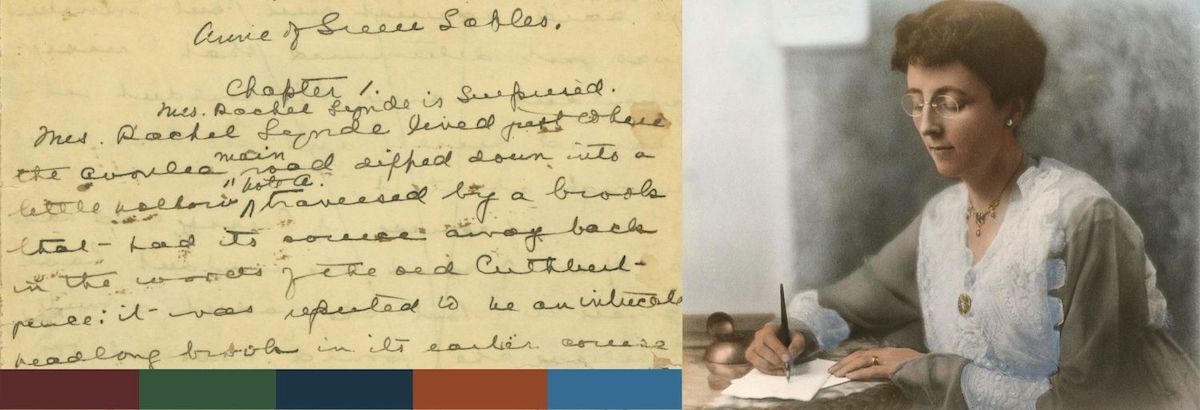 Anne of Green Gables.
Chapter 1.
Mrs. Rachel Lynde is Surprised.
Mrs. Rachel Lynde lived just where
main
the Avonlea road dipped down into a
Note A.
little hollow traversed by a brook
that had its source away back
in the woods of the old Cuthbert
place: it was reputed to be an intricate
headlong brook in its earlier course